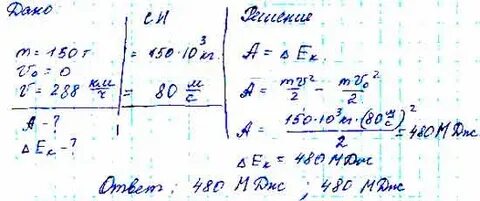 Дано:
m = 150 т
v₀ = 0
v = 288 км/ч
A - ?
ΔEк - ?
СИ
= 150·10³ кг
= 80 м/с
Решение
A = ΔEк
A = mv²/2 - mv₀²/2
A = 150·10³кг·(80 м/с)²/2 = 480 МДж
ΔEк = 480 МДж
Ответ: 480 МДж ; 480 МДж